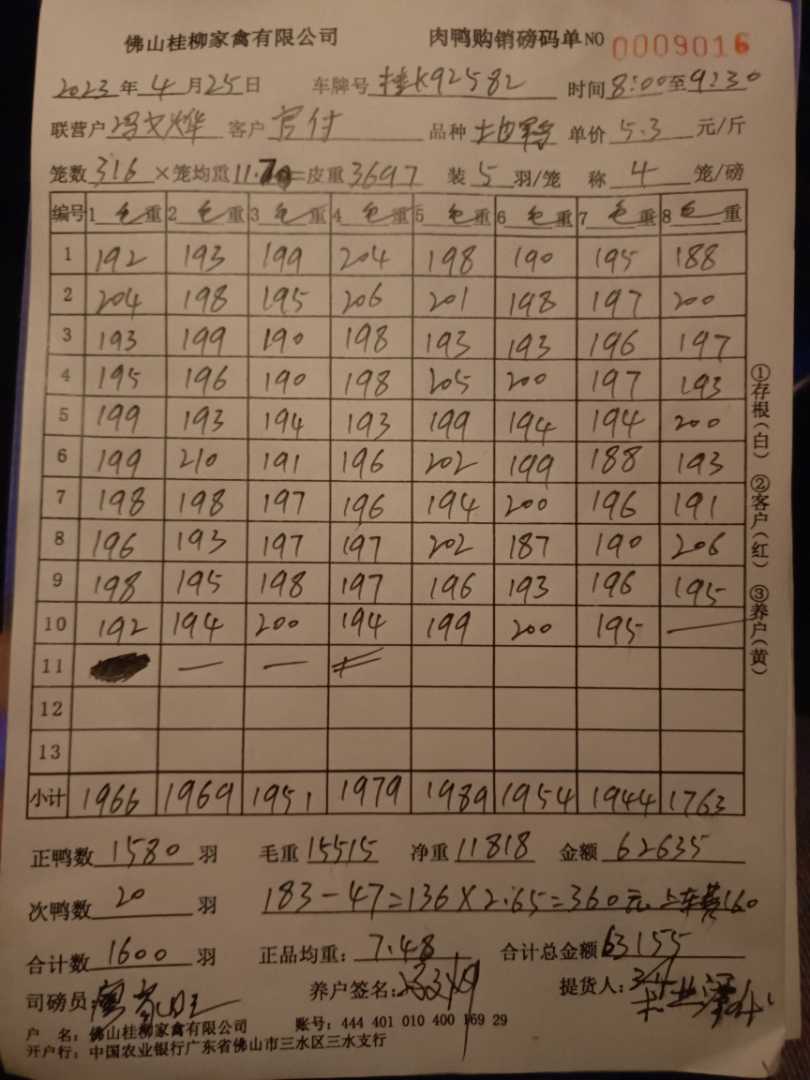 佛山桂柳家禽有限公司 肉鸭购销磅码单 NO 0009016
2023年4月25日 车牌号 桂K92582 时间 8:00至9:30
联营户 冯文烨 客户 品种 单价 5.3 元/斤
笼数 316 ×笼均重 11.70 =皮重 3697 装 5 羽/笼 称 4 笼/磅
编号 1 毛重 2 毛重 3 毛重 4 毛重 5 毛重 6 毛重 7 毛重 8 毛重
1 192 193 199 204 198 190 195 188
2 204 198 195 206 201 198 197 200
3 193 199 190 198 193 193 196 197
4 195 196 190 198 205 200 197 193
5 199 193 194 193 199 194 194 200
6 199 210 191 196 202 199 188 193
7 198 198 197 196 194 200 196 191
8 196 193 197 197 202 187 190 206
9 198 195 198 197 196 193 196 195
10 192 194 200 194 199 200 195 —
11 — —
12
13
小计 1966 1969 1951 1979 1989 1954 1944 1763
正鸭数 1580 羽 毛重 15515 净重 11818 金额 62635
次鸭数 20 羽 183-47=136×2.65=360元 上车费160
合计数 1600 羽 正品均重: 7.48 合计总金额 63155
司磅员: 养户签名: 提货人:
户 名: 佛山桂柳家禽有限公司 账号: 444 401 010 400 169 29
开户行: 中国农业银行广东省佛山市三水区三水支行
①存根(白) ②客户(红) ③养户(黄)